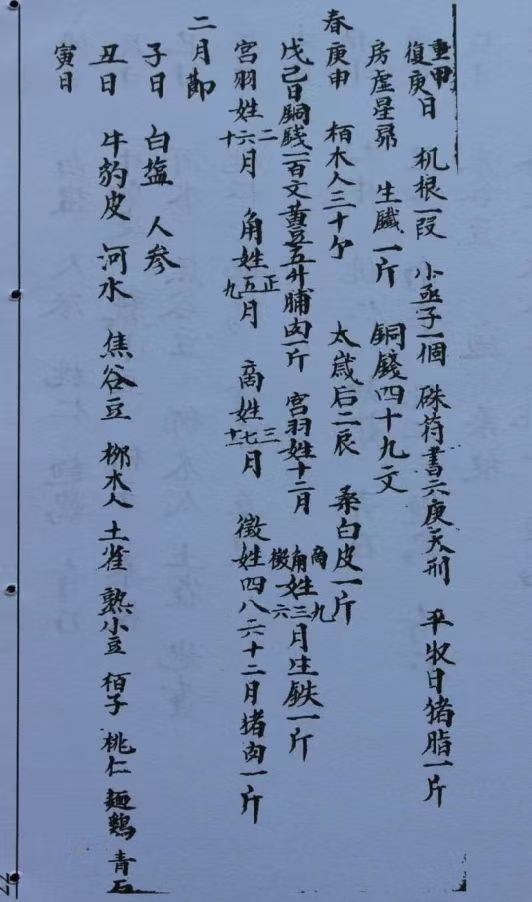 重甲復庚日　机根一段　小函子一個　硃符書六庚天刑　平收日猪脂一斤
房虚星昴　生鐵一斤　銅錢四十九文
春庚申　栢木人三十个　太歲后二辰　桑白皮一斤
戊己日銅錢一百文黄豆五升脯肉一斤　宮羽姓十二月　商角徵姓九三六月生鉄一斤
宮羽姓二六十月　角姓正五九月　商姓三七十一月　徵姓四八六十二月猪肉一斤
二月節
子日　白盐　人参
丑日　牛豹皮　河水　焦谷豆　柳木人　土雀　熟小豆　栢子　桃仁　麺鷄　青石
寅日
22